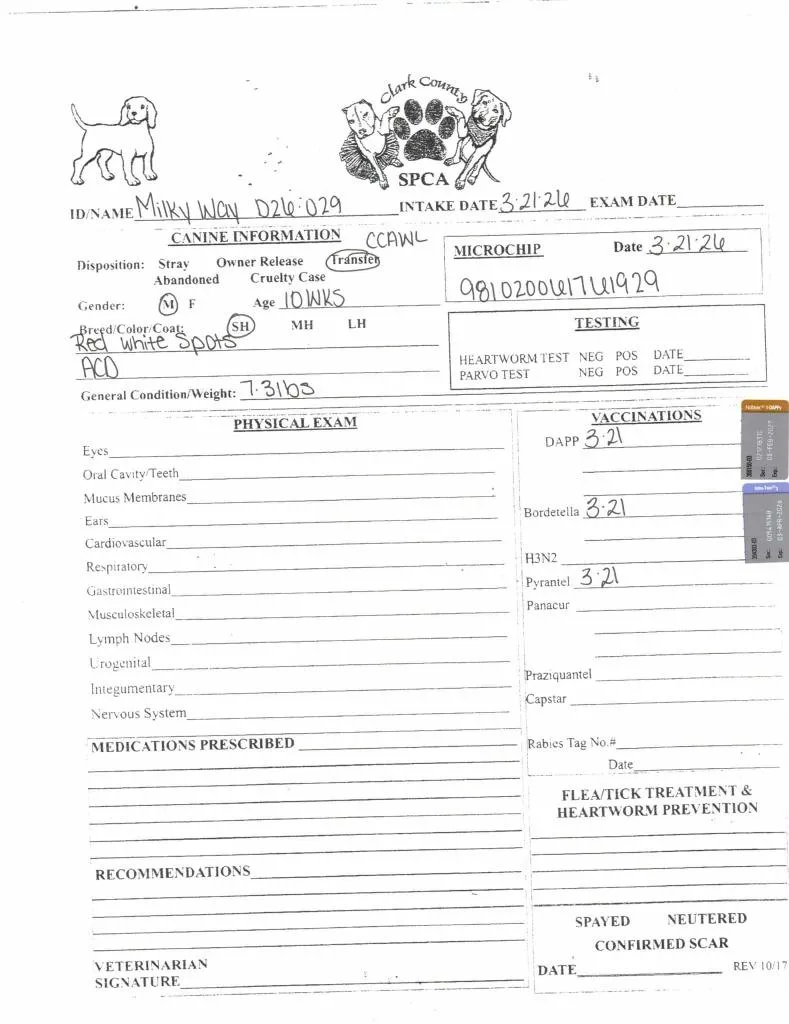 Clark County
SPCA
ID/NAME Milky Way D26-029 INTAKE DATE 3·21·26 EXAM DATE
CANINE INFORMATION CCAWL
Disposition: Stray Owner Release Transfer
Abandoned Cruelty Case
Gender: M F Age 10 WKS
Breed/Color/Coat: SH MH LH
Red White Spots
ACD
General Condition/Weight: 7.3 lbs
MICROCHIP Date 3·21·26
TESTING
HEARTWORM TEST NEG POS DATE
PARVO TEST NEG POS DATE
PHYSICAL EXAM
Eyes
Oral Cavity/Teeth
Mucus Membranes
Ears
Cardiovascular
Respiratory
Gastrointestinal
Musculoskeletal
Lymph Nodes
Urogenital
Integumentary
Nervous System
VACCINATIONS
DAPP 3·21
Bordetella 3·21
H3N2
Pyrantel 3·21
Panacur
Praziquantel
Capstar
Rabies Tag No.#
Date
MEDICATIONS PRESCRIBED
RECOMMENDATIONS
VETERINARIAN
SIGNATURE
FLEA/TICK TREATMENT &
HEARTWORM PREVENTION
SPAYED NEUTERED
CONFIRMED SCAR
DATE
REV 10/17